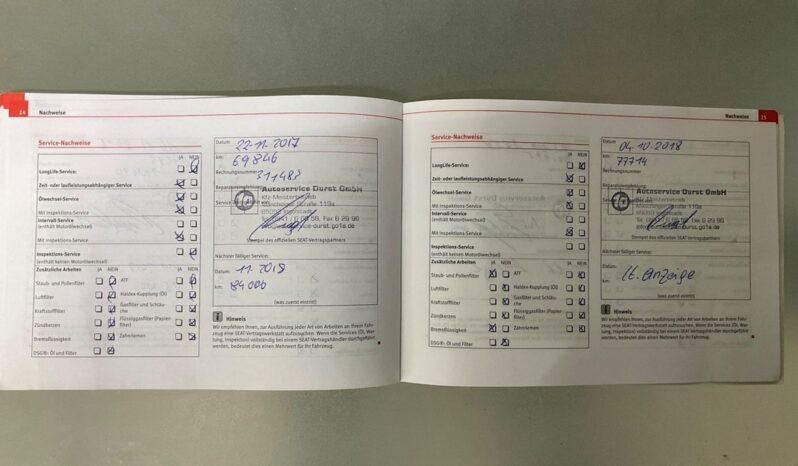 24 Nachweise
Service-Nachweise
JA NEIN
LongLife-Service:
Zeit- oder laufleistungsabhängiger Service
Ölwechsel-Service
Mit Inspektions-Service
Intervall-Service
(enthält Motorölwechsel)
Mit Inspektions-Service
Inspektions-Service
(enthält keinen Motorölwechsel)
Zusätzliche Arbeiten JA NEIN JA NEIN
Staub- und Pollenfilter ATF
Luftfilter Haldex-Kupplung (Öl)
Kraftstofffilter Gasfilter und Schläuche
Zündkerzen Flüssiggasfilter (Papierfilter)
Bremsflüssigkeit Zahnriemen
DSG®: Öl und Filter
Datum 22.11.2017
km: 69846
Rechnungsnummer 311488
Autoservice Durst GmbH
Kfz-Meisterbetrieb
Stempel des offiziellen SEAT-Vertragspartners
Nächster fälliger Service:
Datum: 11.2018
km: 84000
(was zuerst eintritt)
Hinweis
Wir empfehlen Ihnen, zur Ausführung jeder Art von Arbeiten an Ihrem Fahr-
zeug eine SEAT-Vertragswerkstatt aufzusuchen. Wenn die Services (Öl, War-
tung, Inspektion) vollständig bei einem SEAT-Vertragshändler durchgeführt
werden, bedeutet dies einen Mehrwert für Ihr Fahrzeug.
Nachweise 25
Service-Nachweise
JA NEIN
LongLife-Service:
Zeit- oder laufleistungsabhängiger Service
Ölwechsel-Service
Mit Inspektions-Service
Intervall-Service
(enthält Motorölwechsel)
Mit Inspektions-Service
Inspektions-Service
(enthält keinen Motorölwechsel)
Zusätzliche Arbeiten JA NEIN JA NEIN
Staub- und Pollenfilter ATF
Luftfilter Haldex-Kupplung (Öl)
Kraftstofffilter Gasfilter und Schläuche
Zündkerzen Flüssiggasfilter (Papierfilter)
Bremsflüssigkeit Zahnriemen
DSG®: Öl und Filter
Datum 04.10.2018
km: 77714
Rechnungsnummer
Reparaturempfehlung:
Autoservice Durst GmbH
Stempel des offiziellen SEAT-Vertragspartners
Nächster fälliger Service:
Datum:
km: Lt. Anzeige
(was zuerst eintritt)
Hinweis
Wir empfehlen Ihnen, zur Ausführung jeder Art von Arbeiten an Ihrem Fahr-
zeug eine SEAT-Vertragswerkstatt aufzusuchen. Wenn die Services (Öl, War-
tung, Inspektion) vollständig bei einem SEAT-Vertragshändler durchgeführt
werden, bedeutet dies einen Mehrwert für Ihr Fahrzeug.